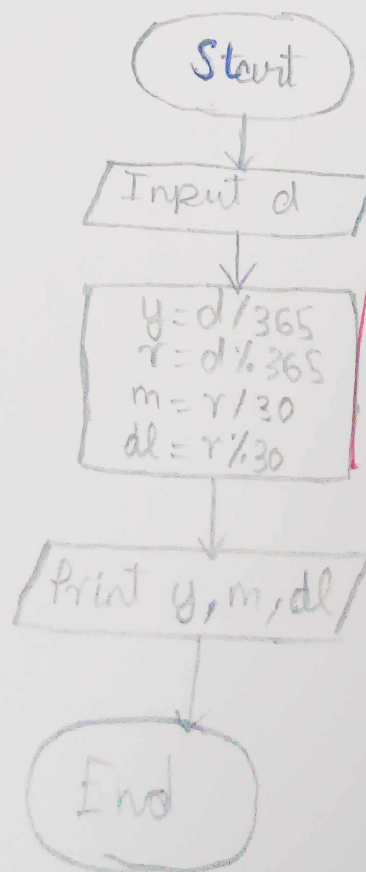 Start
Input d
y=d/365
r=d%365
m=r/30
dl=r%30
Print y, m, dl
End